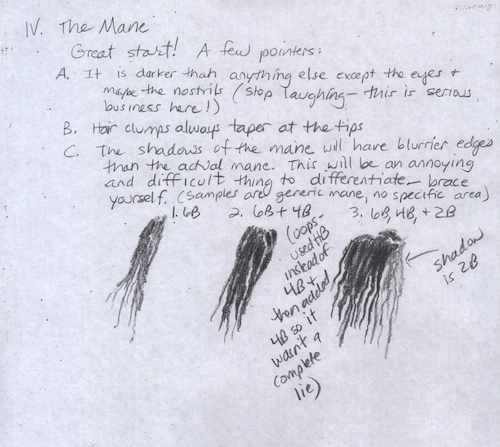 IV. The Mane
Great start! A few pointers:
A. It is darker than anything else except the eyes +
maybe the nostrils (stop laughing - this is serious
business here!)
B. Hair clumps always taper at the tips
C. The shadows of the mane will have blurrier edges
than the actual mane. This will be an annoying
and difficult thing to differentiate - brace
yourself. (Samples are generic mane, no specific area)
1. 6B 2. 6B + 4B 3. 6B, 4B, + 2B
(oops-
used HB
instead of
4B +
then added
4B so it
wasn't a
complete
lie)
shadow
is 2B